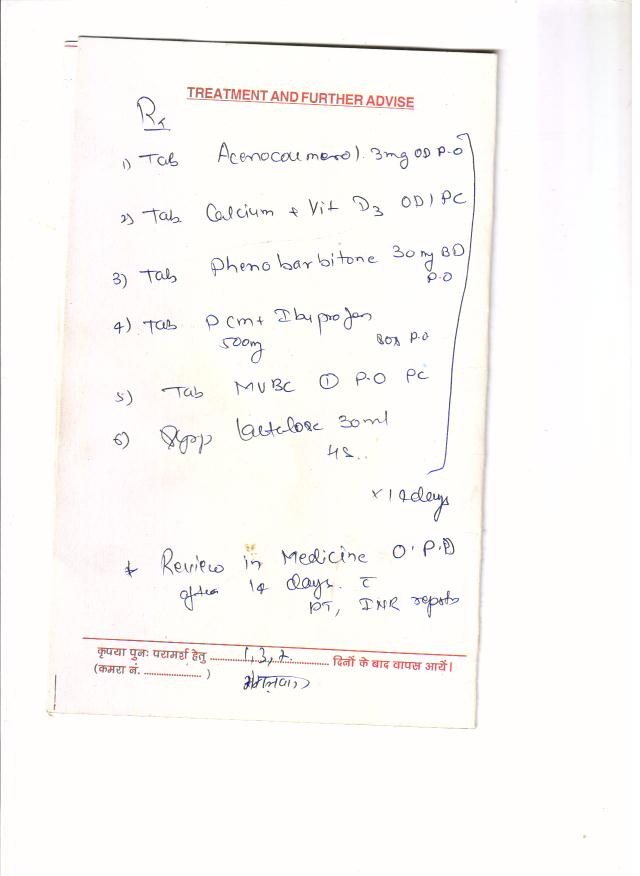 TREATMENT AND FURTHER ADVISE
Rx
1) Tab Acenocoumerol. 3mg OD P.O
2) Tab Calcium + Vit D3 OD 1 PC
3) Tab Phenobarbitone 30mg BD
P.O
4) Tab PCM + Ibuprofen
500mg SOS P.O
5) Tab MVBC ① P.O PC
6) Syrp lactulose 30ml
HS..
x 14 days
* Review in Medicine O.P.D
after 14 days. c̄
PT, INR reports
कृपया पुनः परामर्श हेतु ........ 1, 3, ........ दिनों के बाद वापस आयें।
(कमरा नं. .................... )